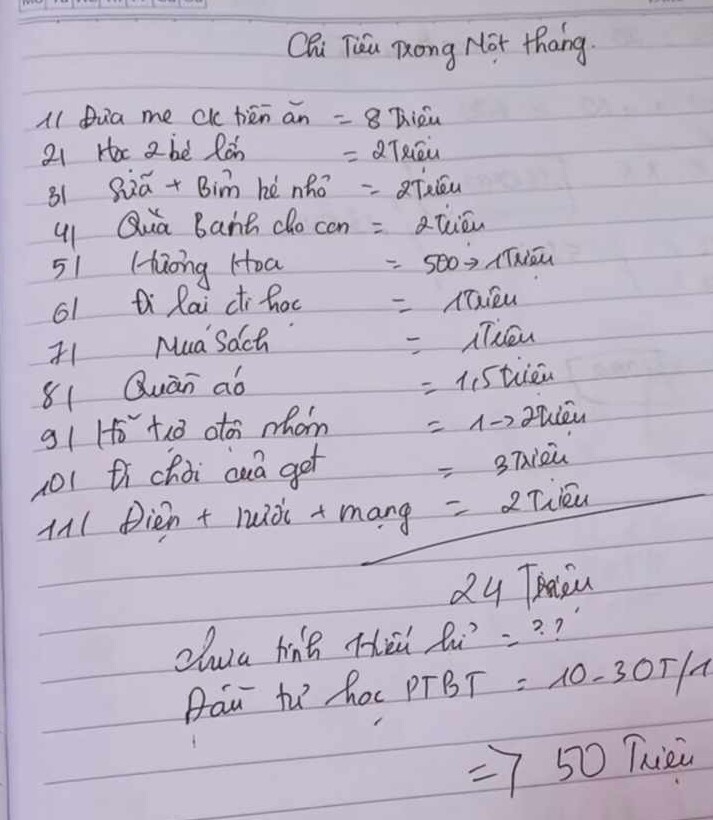 Chi Tiêu Trong Một tháng.
1| Đưa mẹ ck tiền ăn = 8 Triệu
2| Học 2 bé lớn = 2 Triệu
3| Sữa + Bỉm bé nhỏ = 2 Triệu
4| Quà Bánh cho con = 2 Triệu
5| Hương Hoa = 500 → 1 Triệu
6| Đi lại đi học = 1 Triệu
7| Mua Sách = 1 Triệu
8| Quần áo = 1,5 triệu
9| Hỗ trợ đội nhóm = 1 → 2 triệu
10| Đi chơi cafe = 3 Triệu
11| Điện + nước + mạng = 2 Triệu
24 Triệu
chưa tính Hiếu hỉ = ??
Đầu tư học PTBT = 10 - 30T/1
=> 50 Triệu